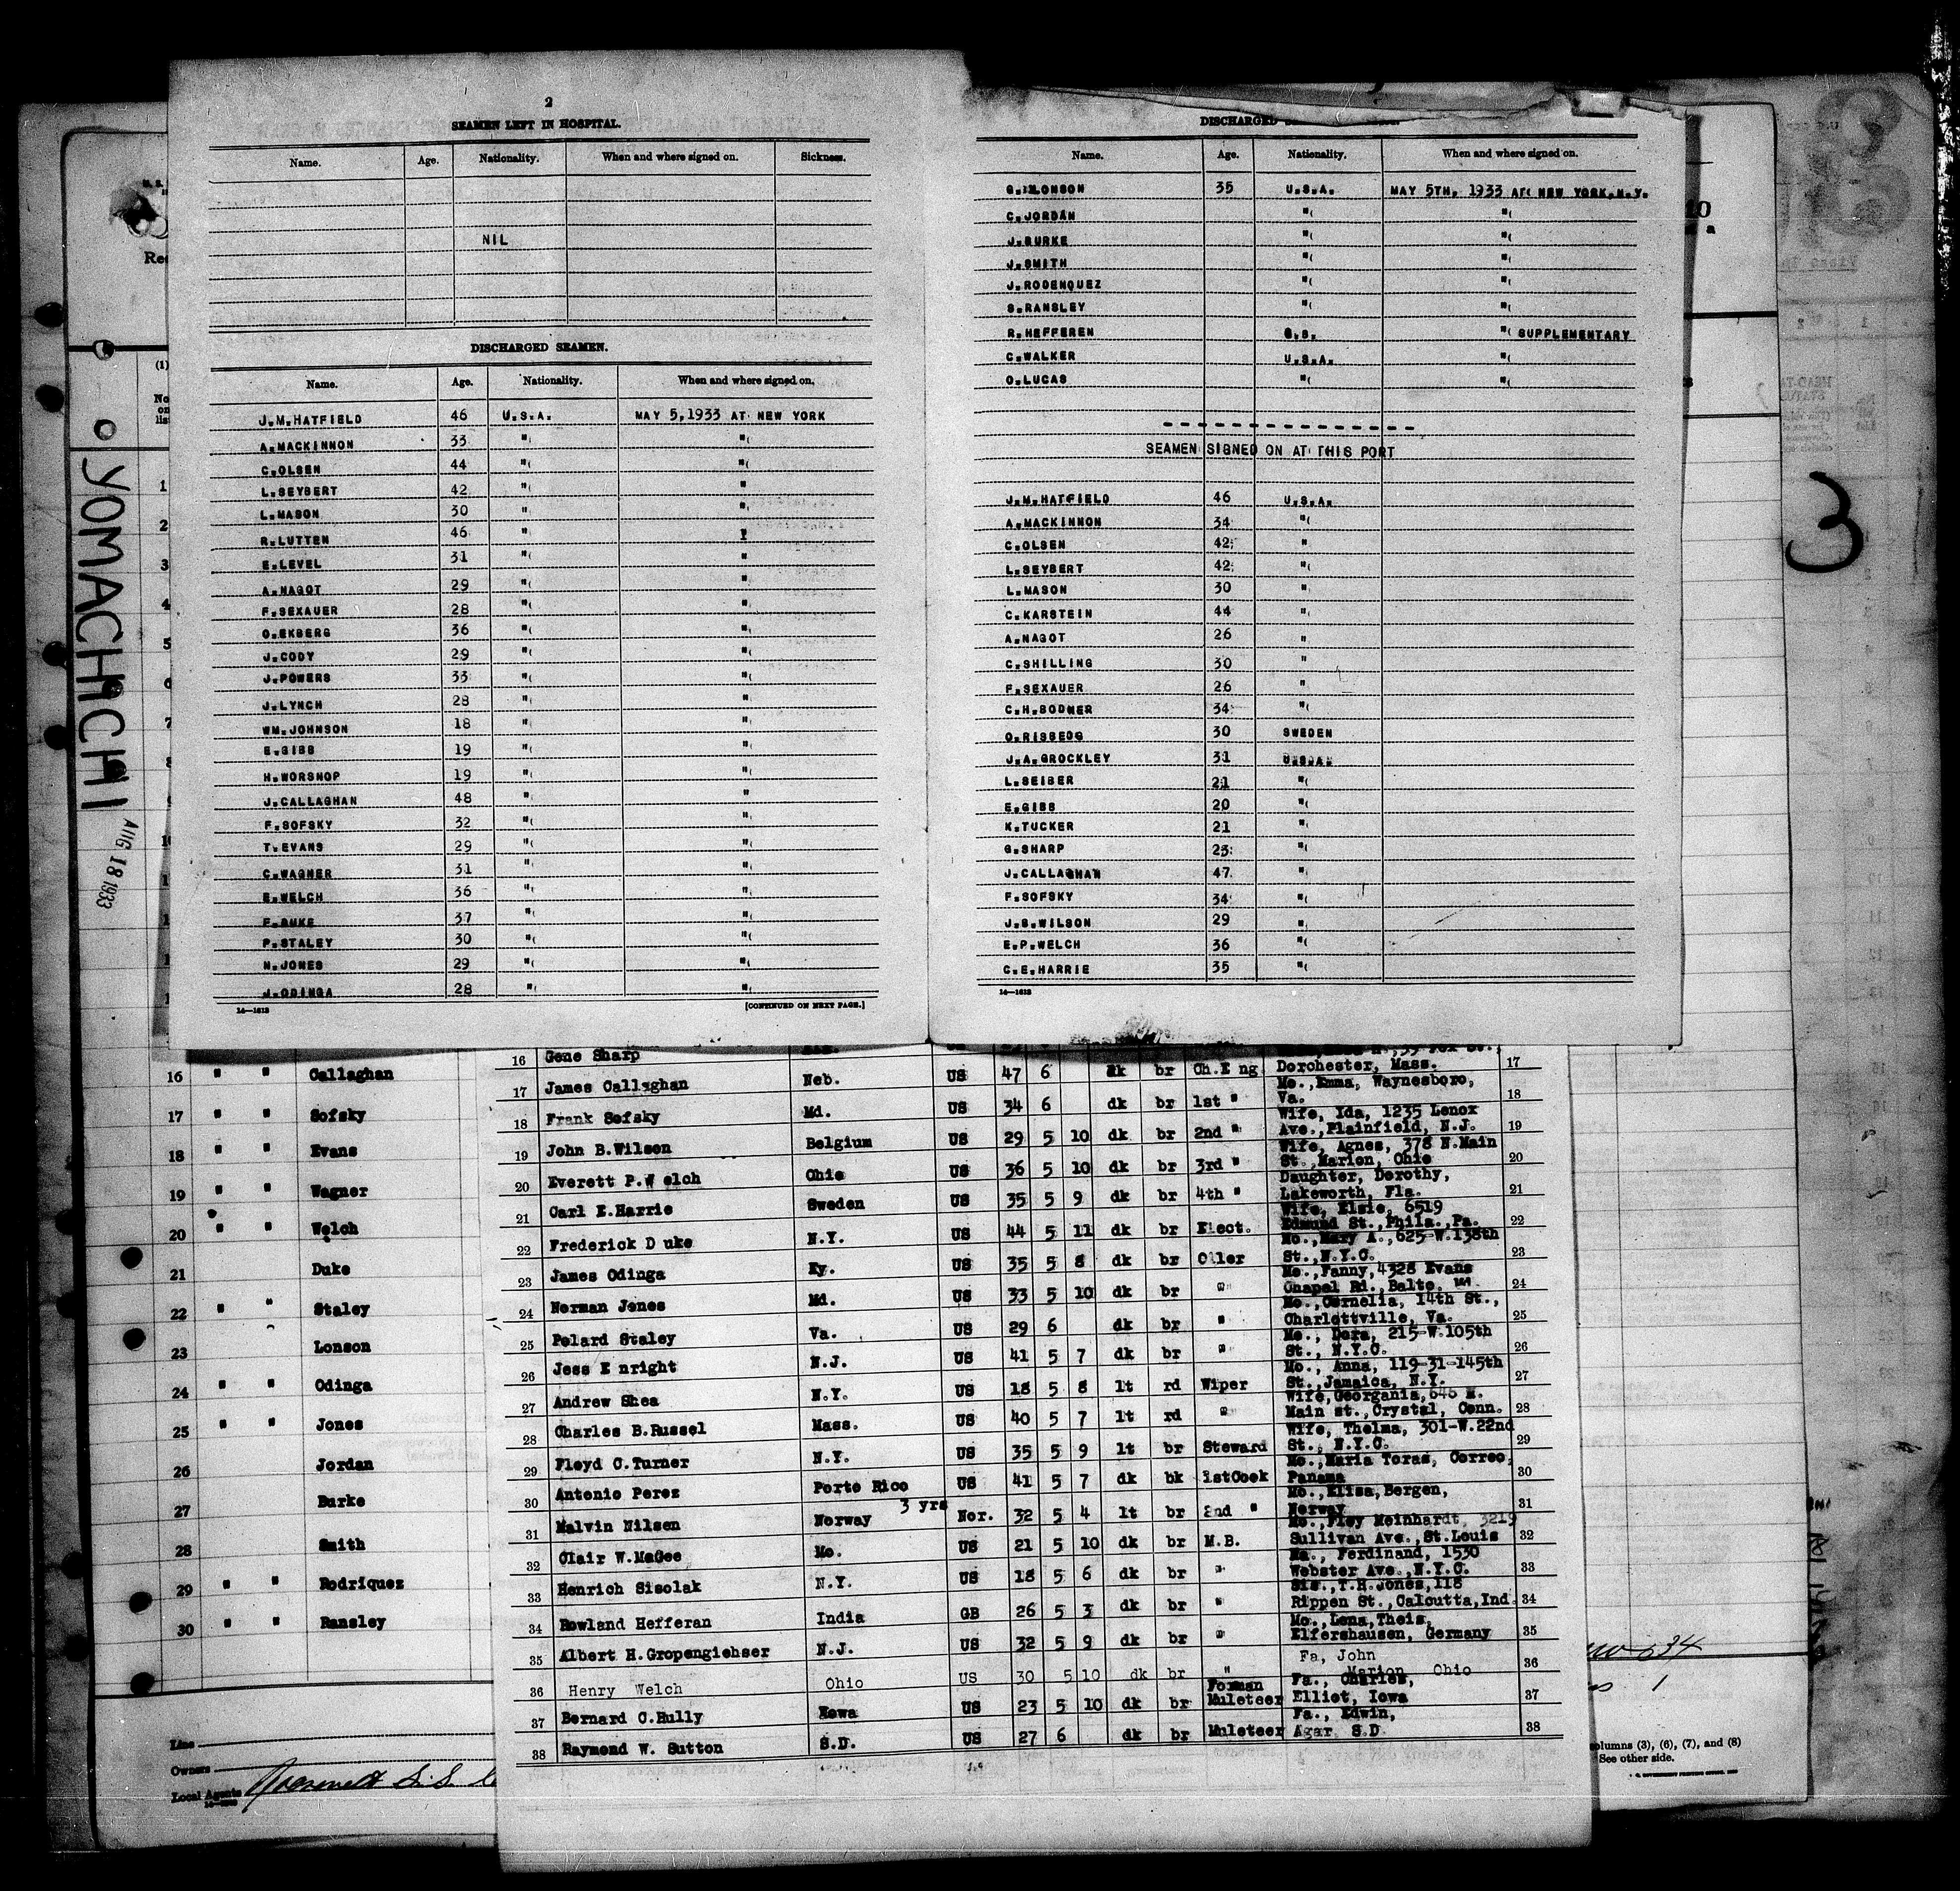 2
SEAMEN LEFT IN HOSPITAL.
Name. Age. Nationality. When and where signed on. Sickness.
NIL
DISCHARGED SEAMEN.
Name. Age. Nationality. When and where signed on.
J.M.HATFIELD 46 U.S.A. MAY 5,1933 AT NEW YORK
A.MACKINNON 33 " "
C.OLSEN 44 " "
L.SEYBERT 42 " "
L.MASON 30 " "
R.LUTTEN 46 "
E.LEVEL 31 " "
A.NAGOT 29 " "
F.SEXAUER 28 " "
O.EKBERG 36 " "
J.CODY 29 " "
J.POWERS 33 " "
J.LYNCH 28 " "
WM.JOHNSON 18 " "
E.GIBB 19 " "
H.WORSNOP 19 " "
J.CALLAGHAN 48 " "
F.SOFSKY 32 " "
T.EVANS 29 " "
C.WAGNER 31 " "
E.WELCH 36 " "
F.DUKE 37 " "
P.STALEY 30 " "
N.JONES 29 " "
J.ODINGA 28 " "
14—1613 [CONTINUED ON NEXT PAGE.]
DISCHARGED
Name. Age. Nationality. When and where signed on.
LONSON 35 U.S.A. MAY 5TH, 1933 AT NEW YORK,N.Y.
C.JORDAN " "
J.BURKE " "
J.SMITH " "
J.RODENQUEZ " "
S.RANSLEY " "
R.HEFFEREN " SUPPLEMENTARY
C.WALKER U.S.A. "
O.LUCAS " "
SEAMEN SIGNED ON AT THIS PORT
J.M.HATFIELD 46 U.S.A.
A.MACKINNON 34 "
C.OLSEN 42 "
L.SEYBERT 42 "
L.MASON 30 "
C.KARSTEIN 44 "
A.NAGOT 26 "
C.SHILLING 30 "
F.SEXAUER 26 "
C.H.BODNER 34 "
O.RISBEDG 30 SWEDEN
J.A.GROCKLEY 31 U.S.A.
L.SEIBER 21 "
E.GIBB 20 "
K.TUCKER 21 "
G.SHARP 23 "
J.CALLAGHAN 47 "
F.SOFSKY 34 "
J.B.WILSON 29 "
E.P.WELCH 36 "
C.E.HARRIE 35 "
14—1613
3
YOMACHICHI
AUG 18 1933
(1)
No.
on
list
1
2
3
4
5
6
7
8
16 " " Callaghan
17 " " Sofsky
18 " " Evans
19 " " Wagner
20 " " Welch
21 Duke
22 " " Staley
23 Lonson
24 " " Odinga
25 " " Jones
26 Jordan
27 Burke
28 Smith
29 " " Rodriquez
30 " " Ransley
Line
Owners
Local Agents Roosevelt S.S.
16 Gene Sharp
17 James Callaghan Neb. US 47 6 dk br Ch.Eng Dorchester, Mass. 17
18 Frank Sofsky Md. US 34 6 dk br 1st " Mo.,Emma, Waynesboro, Va. 18
19 John B.Wilson Belgium US 29 5 10 dk br 2nd " Wife, Ida, 1235 Lenox Ave.,Plainfield, N.J. 19
20 Everett P.Welch Ohio US 36 5 10 dk br 3rd " Wife, Agnes, 378 N.Main St.,Marion, Ohio 20
21 Carl E.Harrie Sweden US 35 5 9 dk br 4th " Daughter, Dorothy, Lakeworth, Fla. 21
22 Frederick Duke N.Y. US 44 5 11 dk br Elect. Wife, Elsie, 6519 Edmund St.,Phila.,Pa. 22
23 James Odinga Ky. US 35 5 8 dk br Oiler Mo.,Mary A.,625-W.138th St.,N.Y.C. 23
24 Norman Jones Md. US 33 5 10 dk br " Mo.,Fanny,4328 Evans Chapel Rd.,Balto. Md. 24
25 Polard Staley Va. US 29 6 dk br " Mo.,Cornelia, 14th St., Charlottville, Va. 25
26 Jess Enright N.J. US 41 5 7 dk br " Mo., Dora, 215-W.105th St., N.Y.C. 26
27 Andrew Shea N.Y. US 18 5 8 lt rd Wiper Mo., Anna, 119-31-145th St.,Jamaica, N.Y. 27
28 Charles B.Russel Mass. US 40 5 7 lt rd " Wife,Georgania,646 N. Main st.,Crystal, Conn. 28
29 Floyd C.Turner N.Y. US 35 5 9 lt br Steward Wife, Thelma, 301-W.22nd St., N.Y.C. 29
30 Antonio Perez Porto Rico US 41 5 7 dk bk 1stCook Mo.,Maria Toras, Correo, Panama 30
31 Malvin Nilsen Norway 3 yrs Nor. 32 5 4 lt br 2nd " Mo.,Elisa,Bergen, Norway 31
32 Clair W.MaGee Mo. US 21 5 10 dk br M.B. Mo.,Floy Meinhardt 3219 Sullivan Ave.,St.Louis 32
33 Henrich Sisolak N.Y. US 18 5 6 dk br " Ferdinand, 1530 Webster Ave.,N.Y.C. 33
34 Rowland Hefferan India GB 26 5 3 dk br " Sis.,T.H.Jones,118 Rippen St.,Calcutta,Ind. 34
35 Albert H.Gropengiehser N.J. US 32 5 9 dk br " Mo.,Lena,Theis, Elfershausen, Germany 35
36 Henry Welch Ohio US 30 5 10 dk br " Fa, John Marion Ohio 36
37 Bernard C.Hully Iowa US 23 5 10 dk br Forman Muleteer Fa., Charles, Elliot, Iowa 37
38 Raymond W. Sutton S.D. US 27 6 dk br Muleteer Fa., Edwin, Agar S.D. 38
columns (3), (6), (7), and (8)
See other side.